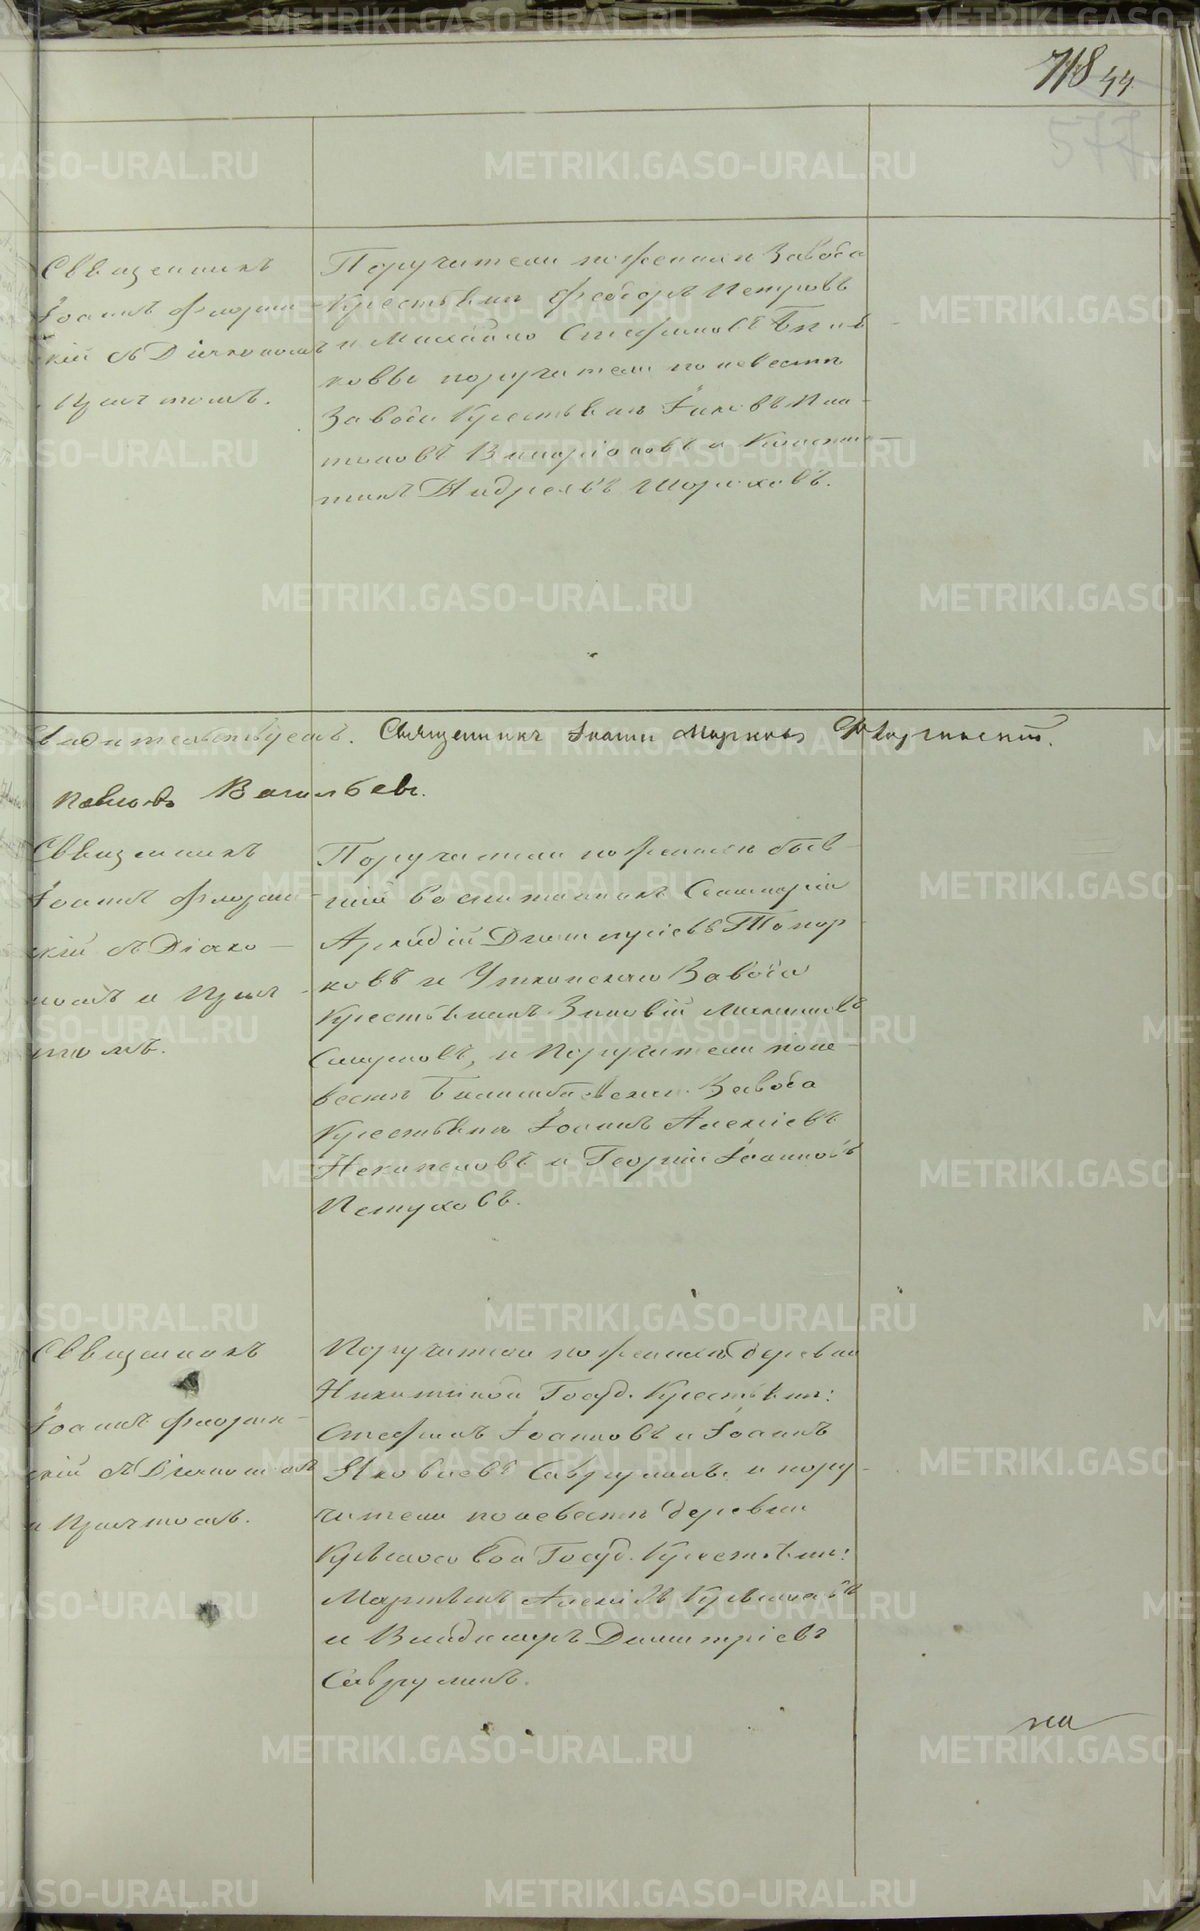 718 44
577
Священникъ
Іоаннъ Флорин
скій съ Діакономъ
и Причтомъ.
Поручители по женихѣ Завода
Крестьяне Феодоръ Петровъ
и Михаило Стефановъ
ковы поручители по невестѣ
Завода Крестьяне Іаковъ Пла
тоновъ и Констан
тинъ Андреевъ Шороховъ.
свидетельствуемъ. Священникъ Іоаннъ Марковъ Флоринскій.
Павловъ Васильевъ.
Священникъ
Іоаннъ Флорин
скій съ Діако
номъ и Прич
томъ.
Поручители по женихѣ быв
шій воспитанникъ Семинаріи
Аркадій Димитріевъ Топор
ковъ и Уткинскаго Завода
Крестьянинъ Зиновій
и Поручители поне
вестѣ Билимбаевскаго Завода
Крестьяне Іоаннъ Алексіевъ
Некипеловъ и Георгій Іоанновъ
Петуховъ.
Священникъ
Іоаннъ Флорин
скій съ Діакономъ
и Причтомъ.
Поручители по женихѣ деревни
Никитиной Госуд. Крестьяне:
Стефанъ Іоанновъ и Іоаннъ
Яковлевъ Саврулинъ. и пору
чители по невестѣ деревни
Госуд. Крестьяне:
Алексіевъ
и Владимиръ Димитріевъ
Саврулинъ.
на
METRIKI.GASO-URAL.RU